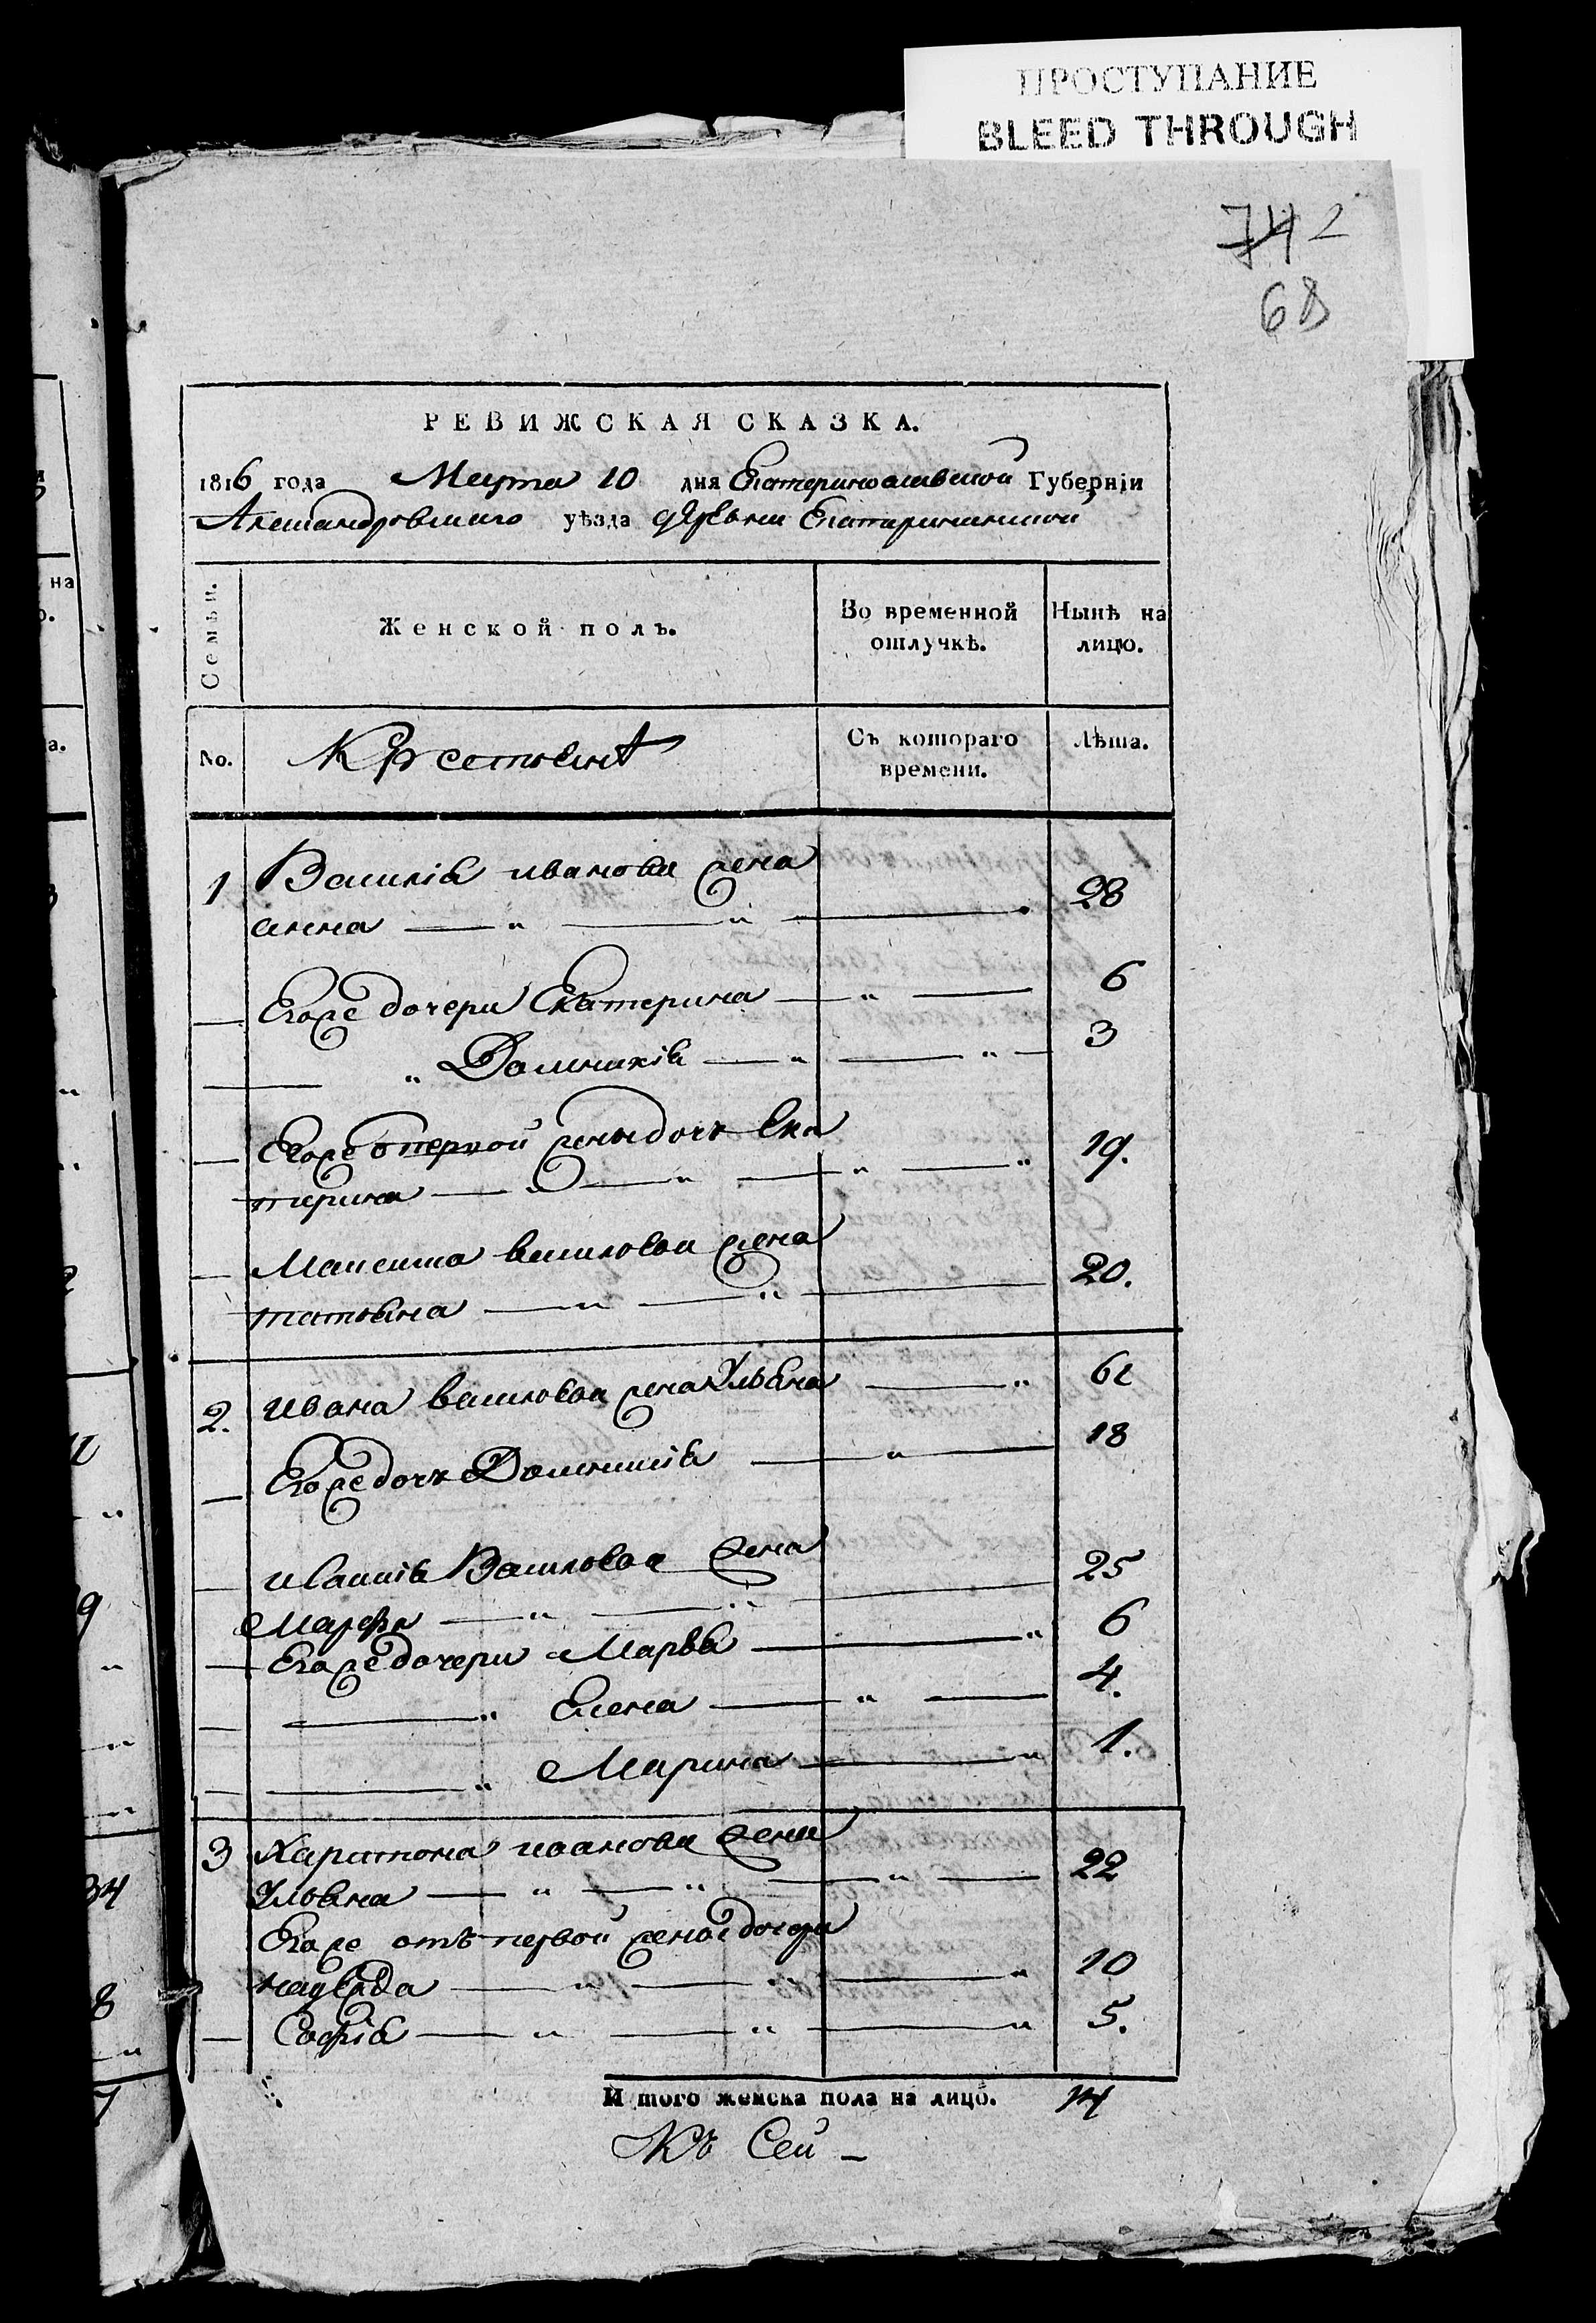 ПРОСТУПАНИЕ
BLEED THROUGH
74 2
68
РЕВИЖСКАЯ СКАЗКА.
1816 года Марта 10 дня Екатеринославской Губерніи
Александровскаго уѣзда деревни Екатерининской
Семьи.
Женской полъ.
Во временной отлучкѣ.
Нынѣ на лицо.
No.
Крестьянѣ
Съ котораго времени.
Лѣта.
1 Василія иванова жена
анна — " — " — 28
Егоже дочери Екатерина — " — 6
" Домникія — " — " — 3
Егоже отпервой жены дочь Ека
терина — " — " — " — " 19.
Максима василова жена
татьяна — " — " — 20.
2. ивана василова жена Ульяна — " 61
Егоже дочь Домникія — " — 18
Василова жена
Марфа — " — " — 25
Егоже дочери Марья — " 6
— " Елена — " — 4.
— " Марина — " 1.
3 Харитона иванова жена
Ульяна — " — " — " — 22
Егоже отъ первой жены дочери
надежда — " — " — " 10
Софія — " — " — " 5.
И того женска пола на лицо. 14
Къ Сей —